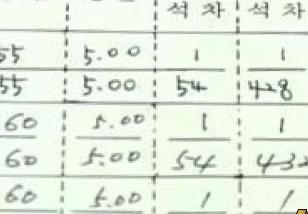 석 차 석 차
55 5.00 1 1
55 5.00 54 428
60 5.00 1 1
60 5.00 54 432
60 5.00 1 1